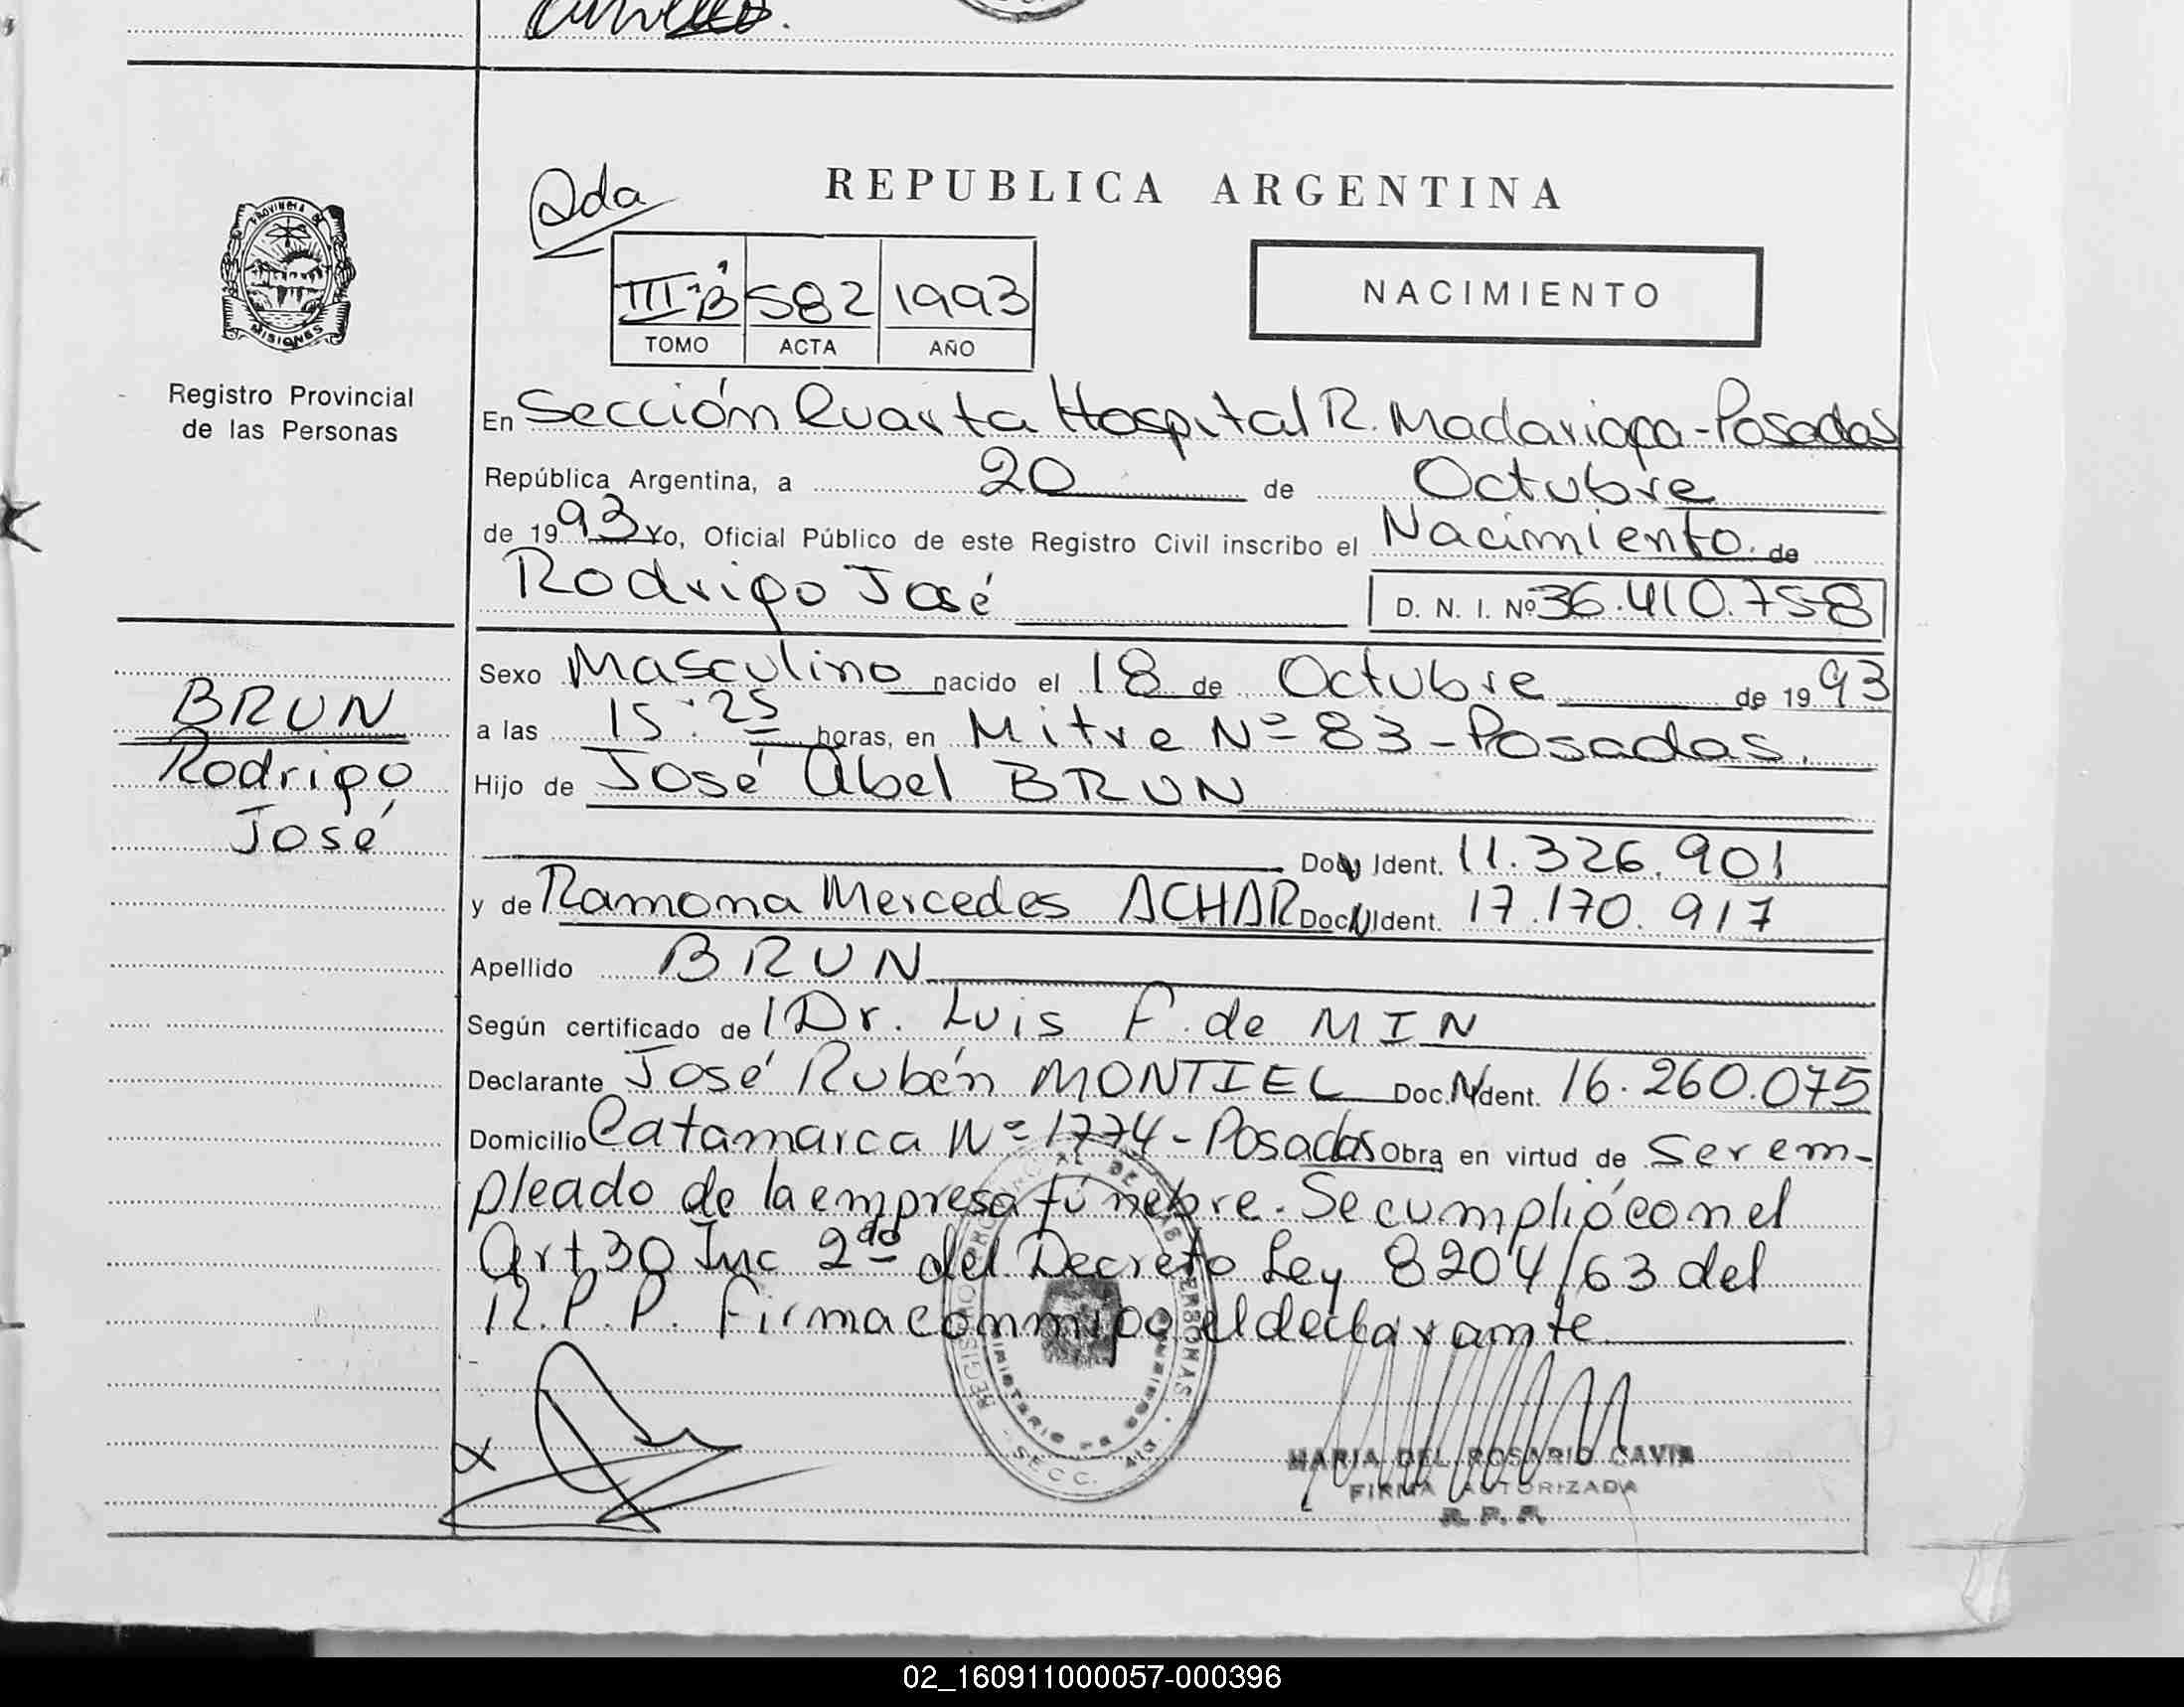 REPUBLICA ARGENTINA
PROVINCIA DE
MISIONES
Registro Provincial
de las Personas
III "B" 582 1993
TOMO ACTA AÑO
NACIMIENTO
En Sección Cuarta Hospital R. Madariaga - Posadas
República Argentina, a 20 de Octubre
de 1993 Yo, Oficial Público de este Registro Civil inscribo el Nacimiento de
Rodrigo José D. N. I. Nº 36.410.758
BRUN
Rodrigo
José
Sexo Masculino nacido el 18 de Octubre de 1993
a las 15:25 horas, en Mitre Nº 83 - Posadas.
Hijo de José Abel BRUN
Doc. Ident. 11.326.901
y de Ramona Mercedes ACHAR Doc. N Ident. 17.170.917
Apellido BRUN
Según certificado de Dr. Luis F. de MIN
Declarante José Rubén MONTIEL Doc. N Ident. 16.260.075
Domicilio Catamarca Nº 1774 - Posadas Obra en virtud de Ser em-
pleado de la empresa fúnebre. Se cumplió con el
Art 30 Inc 2do del Decreto Ley 8204/63 del
R.P.P. Firma conmigo el declarante
REGISTRO PROVINCIAL DE LAS PERSONAS
MINISTERIO DE GOBIERNO
SECC. 4ta.
X
MARIA DEL ROSARIO CAVIA
FIRMA AUTORIZADA
R. P. P.
02_160911000057-000396